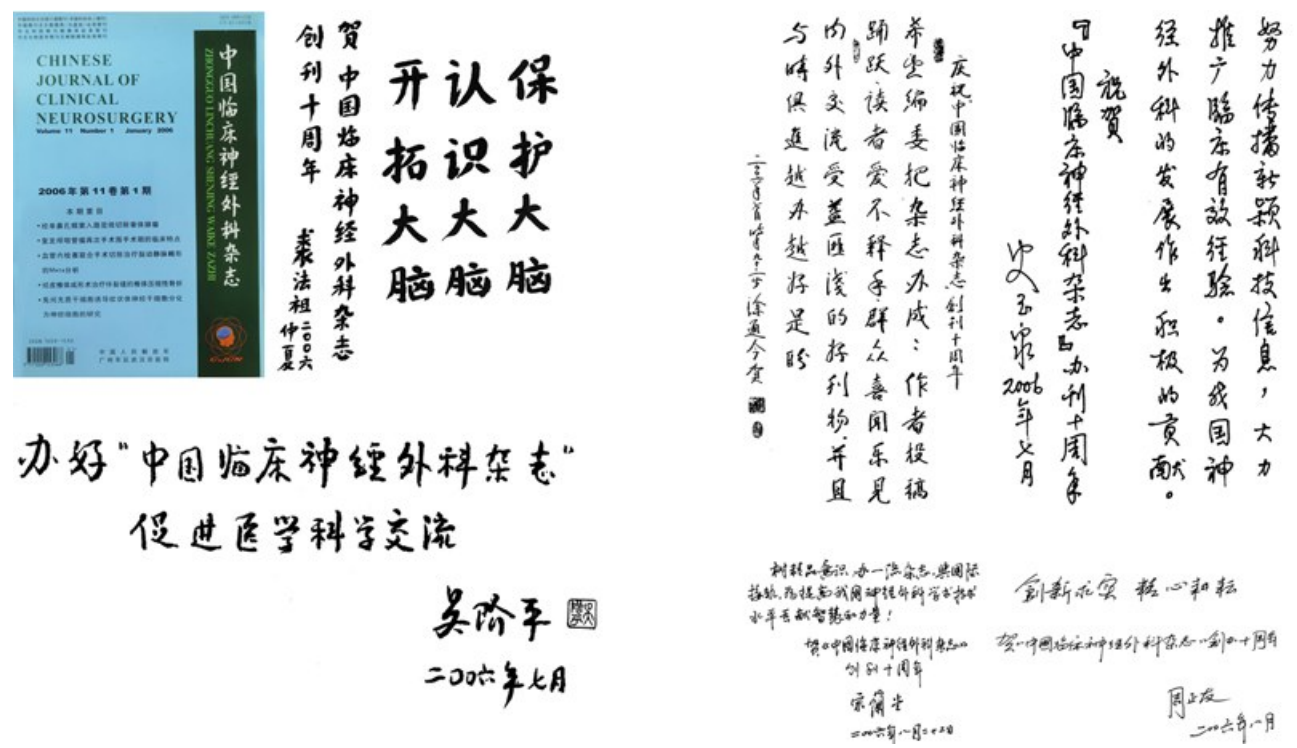 CHINESE
JOURNAL OF
CLINICAL
NEUROSURGERY
Volume 11 Number 1 January 2006
2006年第11卷第1期
本期要目
中国临床神经外科杂志
ZHONGGUO LINCHUANG SHENJING WAIKE ZAZHI
保护大脑
认识大脑
开拓大脑
贺中国临床神经外科杂志
创刊十周年
裘法祖二〇〇六
仲夏
办好"中国临床神经外科杂志"
促进医学科学交流
吴阶平
二〇〇六年七月
努力传播新颖科技信息,大力
推广临床有效经验。为我国神
经外科的发展作出积极的贡献。
祝贺
『中国临床神经外科杂志』办刊十周年
史玉泉
2006年七月
庆祝中国临床神经外科杂志创刊十周年
希望编委把杂志办成:作者投稿
踊跃读者爱不释手群众喜闻乐见
内外交流受益匪浅的好刊物并且
与時俱進越办越好是盼
涂通今贺
树精品意识,办一流杂志,与国际
接轨,为提高我国神经外科学术技术
水平贡献智慧和力量!
贺《中国临床神经外科杂志》
创刊十周年
二〇〇六年八月二十二日
创新求实 精心耕耘
贺"中国临床神经外科杂志"创办十周年
周正友
二〇〇六年八月